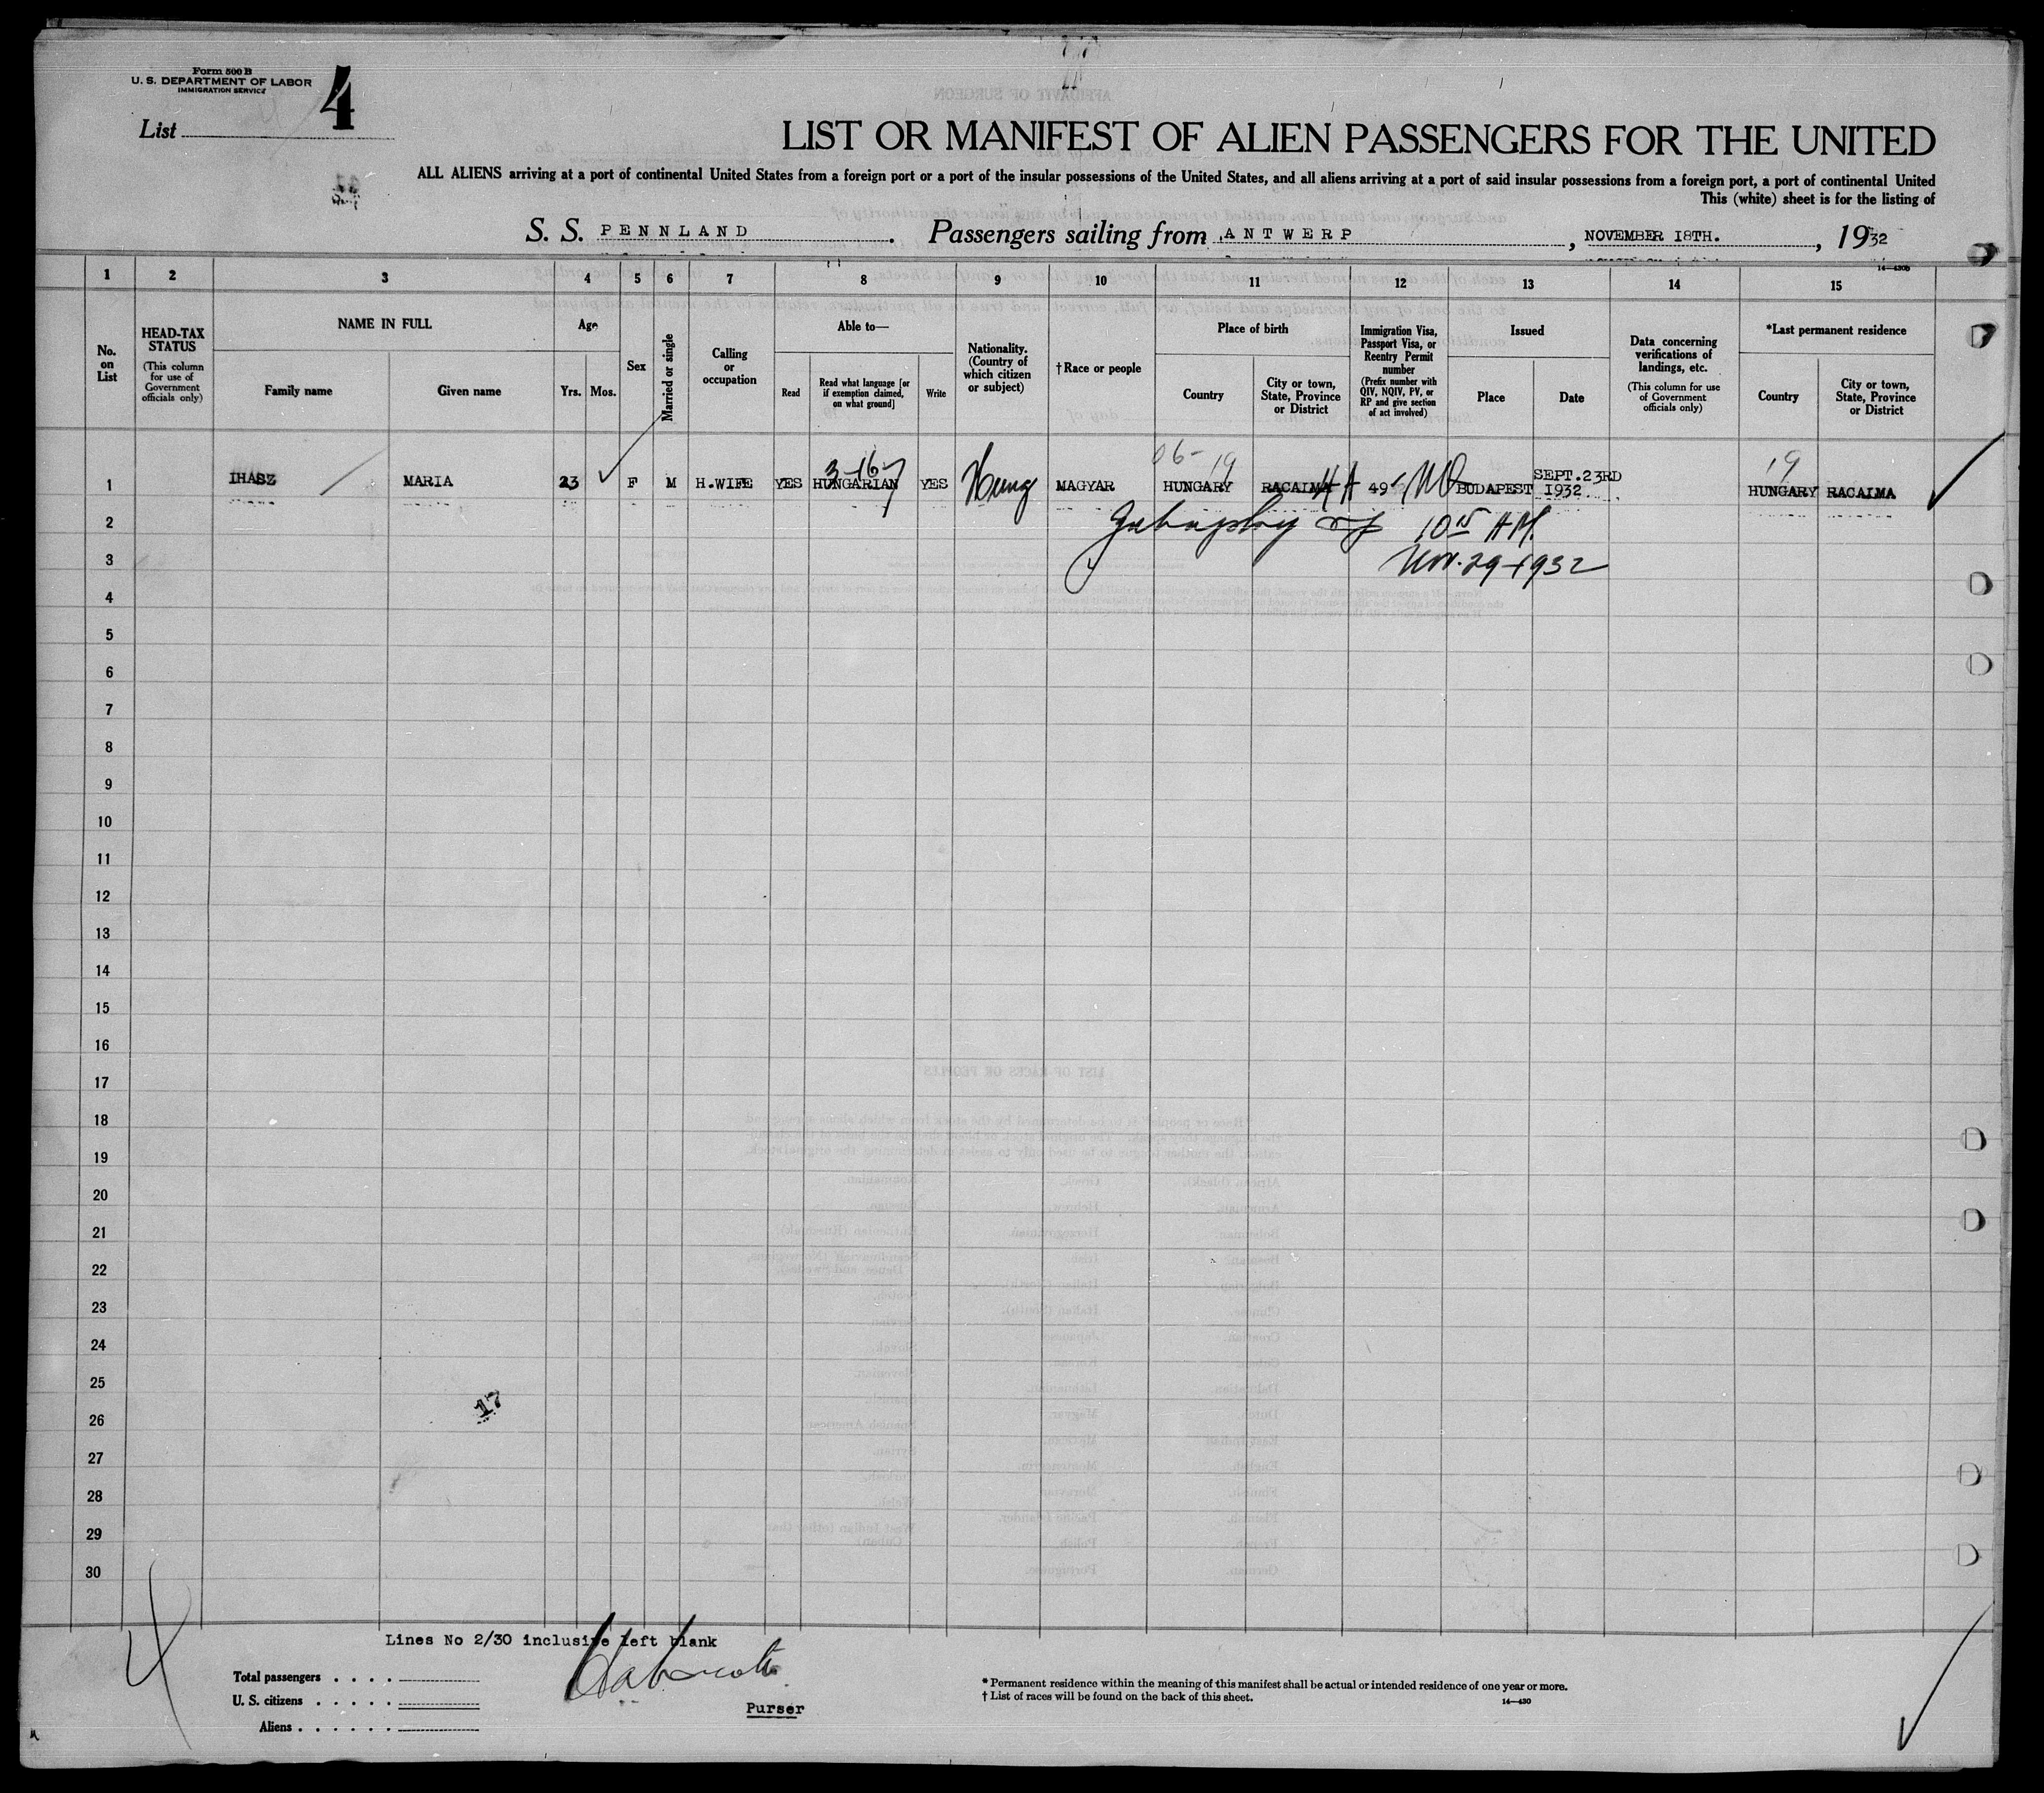 Form 500 B
U. S. DEPARTMENT OF LABOR
IMMIGRATION SERVICE
List 4
LIST OR MANIFEST OF ALIEN PASSENGERS FOR THE UNITED
ALL ALIENS arriving at a port of continental United States from a foreign port or a port of the insular possessions of the United States, and all aliens arriving at a port of said insular possessions from a foreign port, a port of continental United
This (white) sheet is for the listing of
S. S. PENNLAND. Passengers sailing from ANTWERP, NOVEMBER 18TH., 1932
14—430b
1 2 3 4 5 6 7 8 9 10 11 12 13 14 15
No. on List
HEAD-TAX STATUS
(This column for use of Government officials only)
NAME IN FULL
Family name
Given name
Age
Yrs.
Mos.
Sex
Married or single
Calling or occupation
Able to—
Read
Read what language [or if exemption claimed, on what ground]
Write
Nationality. (Country of which citizen or subject)
†Race or people
Place of birth
Country
City or town, State, Province or District
Immigration Visa, Passport Visa, or Reentry Permit number
(Prefix number with QIV, NQIV, PV, or RP and give section of act involved)
Issued
Place
Date
Data concerning verifications of landings, etc.
(This column for use of Government officials only)
*Last permanent residence
Country
City or town, State, Province or District
3-16-7 06- 19 19
1 IHASZ MARIA 23 F M H.WIFE YES HUNGARIAN YES Hung MAGYAR HUNGARY RACALMA 49 BUDAPEST SEPT.23RD 1932 HUNGARY RACALMA
2 10 15 AM.
3 Nov. 29-1932
4
5
6
7
8
9
10
11
12
13
14
15
16
17
18
19
20
21
22
23
24
25
17
26
27
28
29
30
Lines No 2/30 inclusive left blank
4
Total passengers
U. S. citizens
Aliens
Purser
* Permanent residence within the meaning of this manifest shall be actual or intended residence of one year or more.
† List of races will be found on the back of this sheet.
14—430